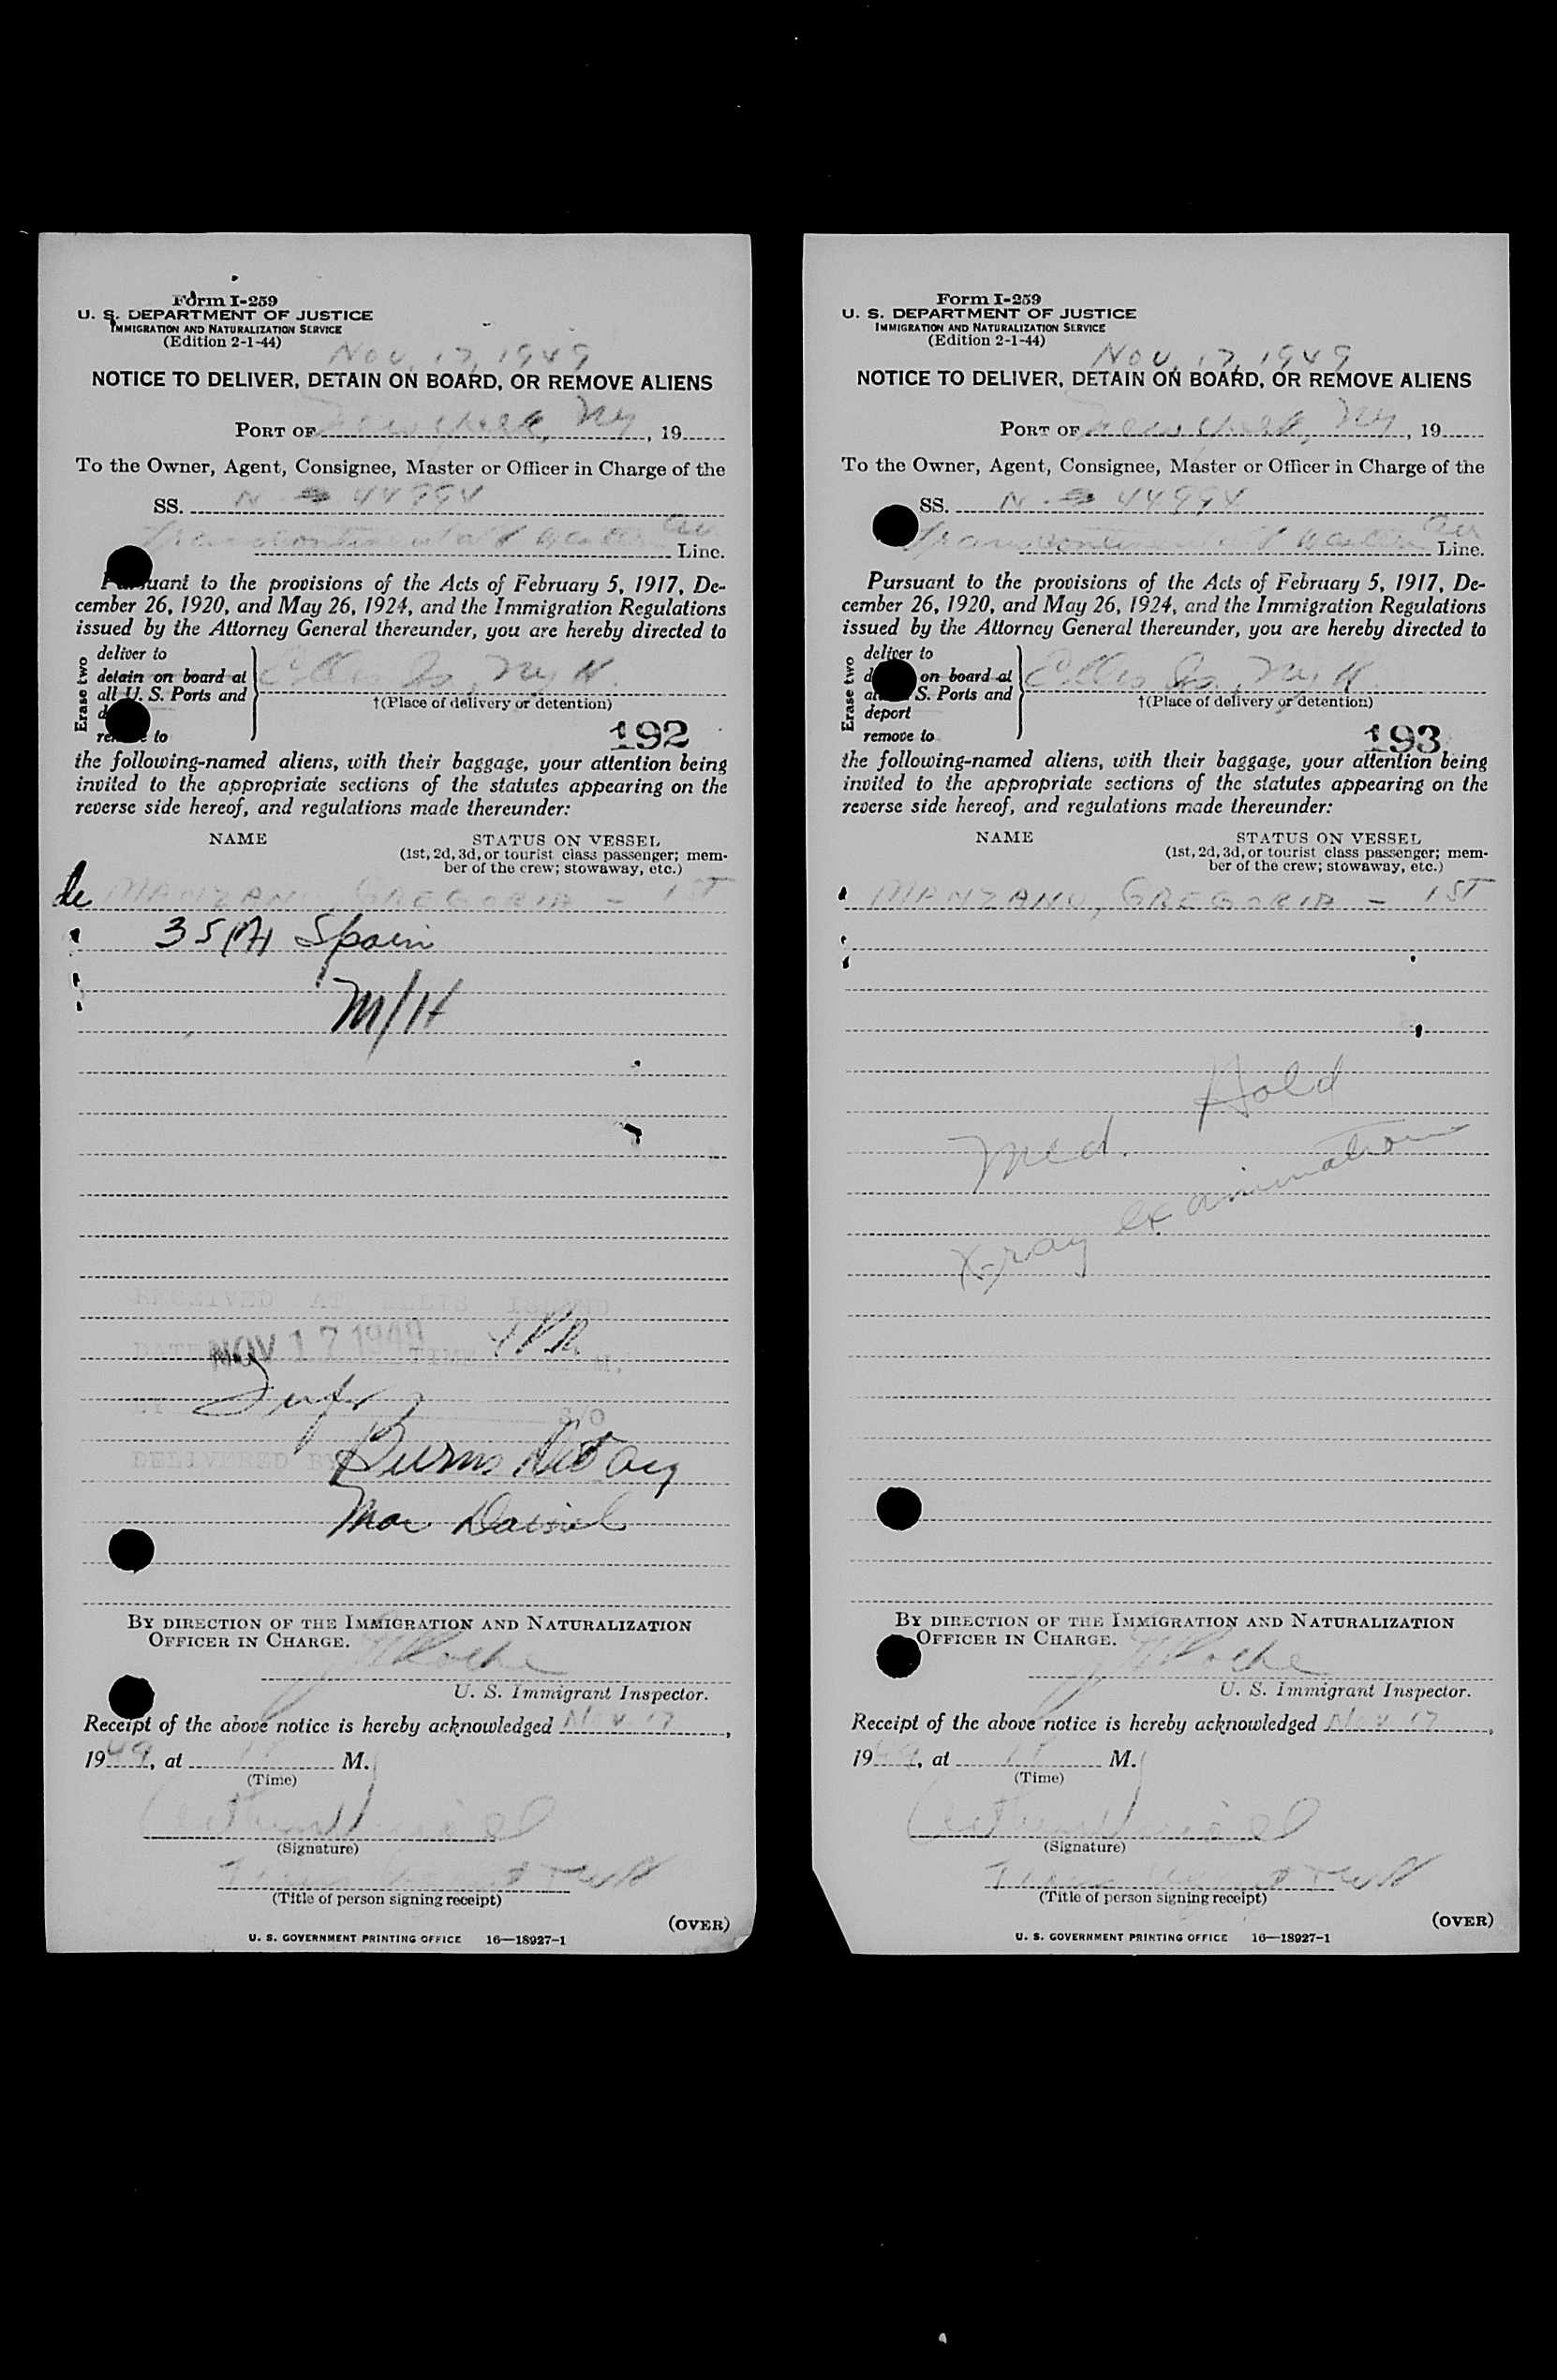 Form I-259
U. S. DEPARTMENT OF JUSTICE
IMMIGRATION AND NATURALIZATION SERVICE
(Edition 2-1-44)
Nov. 17, 1949
NOTICE TO DELIVER, DETAIN ON BOARD, OR REMOVE ALIENS
PORT OF New York, NY, 19
To the Owner, Agent, Consignee, Master or Officer in Charge of the
SS. N
Transcontinental & Western Air Line.
Pursuant to the provisions of the Acts of February 5, 1917, De-
cember 26, 1920, and May 26, 1924, and the Immigration Regulations
issued by the Attorney General thereunder, you are hereby directed to
Erase two
deliver to
detain on board at
all U. S. Ports and
remove to
Ellis Is, NY H.
†(Place of delivery or detention)
192
the following-named aliens, with their baggage, your attention being
invited to the appropriate sections of the statutes appearing on the
reverse side hereof, and regulations made thereunder:
NAME STATUS ON VESSEL
(1st, 2d, 3d, or tourist class passenger; mem-
ber of the crew; stowaway, etc.)
de MANZANO, GREGORIA - 1ST
35 Spain
M/H
RECEIVED AT ELLIS ISLAND
DATE NOV 17 1949 TIME 4 PM M.
S/O
DELIVERED BY Burns Det Acy
BY DIRECTION OF THE IMMIGRATION AND NATURALIZATION
OFFICER IN CHARGE.
Roche
U. S. Immigrant Inspector.
Receipt of the above notice is hereby acknowledged Nov 17,
1949, at M.
(Time)
(Signature)
(Title of person signing receipt)
(OVER)
U. S. GOVERNMENT PRINTING OFFICE 16—18927-1
Form I-259
U. S. DEPARTMENT OF JUSTICE
IMMIGRATION AND NATURALIZATION SERVICE
(Edition 2-1-44)
Nov. 17, 1949
NOTICE TO DELIVER, DETAIN ON BOARD, OR REMOVE ALIENS
PORT OF New York, NY, 19
To the Owner, Agent, Consignee, Master or Officer in Charge of the
SS. N
Transcontinental & Western Air Line.
Pursuant to the provisions of the Acts of February 5, 1917, De-
cember 26, 1920, and May 26, 1924, and the Immigration Regulations
issued by the Attorney General thereunder, you are hereby directed to
Erase two
deliver to
on board at
S. Ports and
deport
remove to
Ellis Is, NY H.
†(Place of delivery or detention)
193
the following-named aliens, with their baggage, your attention being
invited to the appropriate sections of the statutes appearing on the
reverse side hereof, and regulations made thereunder:
NAME STATUS ON VESSEL
(1st, 2d, 3d, or tourist class passenger; mem-
ber of the crew; stowaway, etc.)
MANZANO, GREGORIA - 1ST
Med. Hold
X-ray examination
BY DIRECTION OF THE IMMIGRATION AND NATURALIZATION
OFFICER IN CHARGE.
Roche
U. S. Immigrant Inspector.
Receipt of the above notice is hereby acknowledged Nov 17,
1949, at M.
(Time)
(Signature)
(Title of person signing receipt)
(OVER)
U. S. GOVERNMENT PRINTING OFFICE 16—18927-1